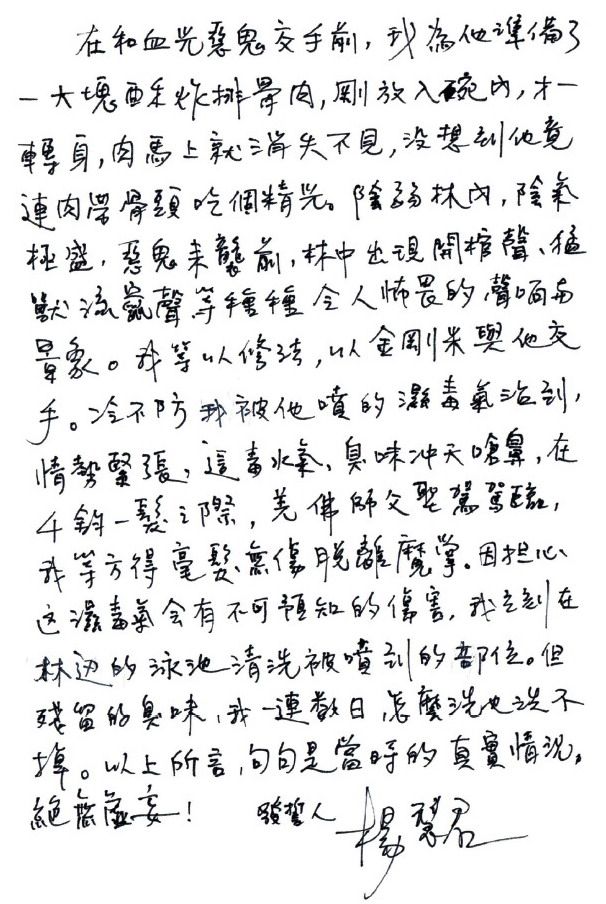 在和血光惡鬼交手前,我為他準備了
一大塊酥炸排骨肉,剛放入碗內,才一
轉身,肉馬上就消失不見,没想到他竟
連肉帶骨頭吃個精光。陰弱林內,陰氣
極盛,惡鬼來襲前,林中出現開棺聲、猛
獸流竄聲等種種令人怖畏的聲响与
景象。我等以修法,以金剛米與他交
手。冷不防我被他噴的濕毒氣沾到,
情勢緊張,這毒水氣,臭味冲天嗆鼻,在
千鈞一髮之際,羌佛師父聖駕駕臨,
我等方得毫髮無傷脱離魔掌。因担心
这濕毒氣会有不可預知的傷害,我立刻在
林边的泳池清洗被噴到的部位。但
殘留的臭味,我一連數日,怎麼洗也洗不
掉。以上所言,句句是當時的真實情況,
絕無虛妄!
發誓人 楊慧君